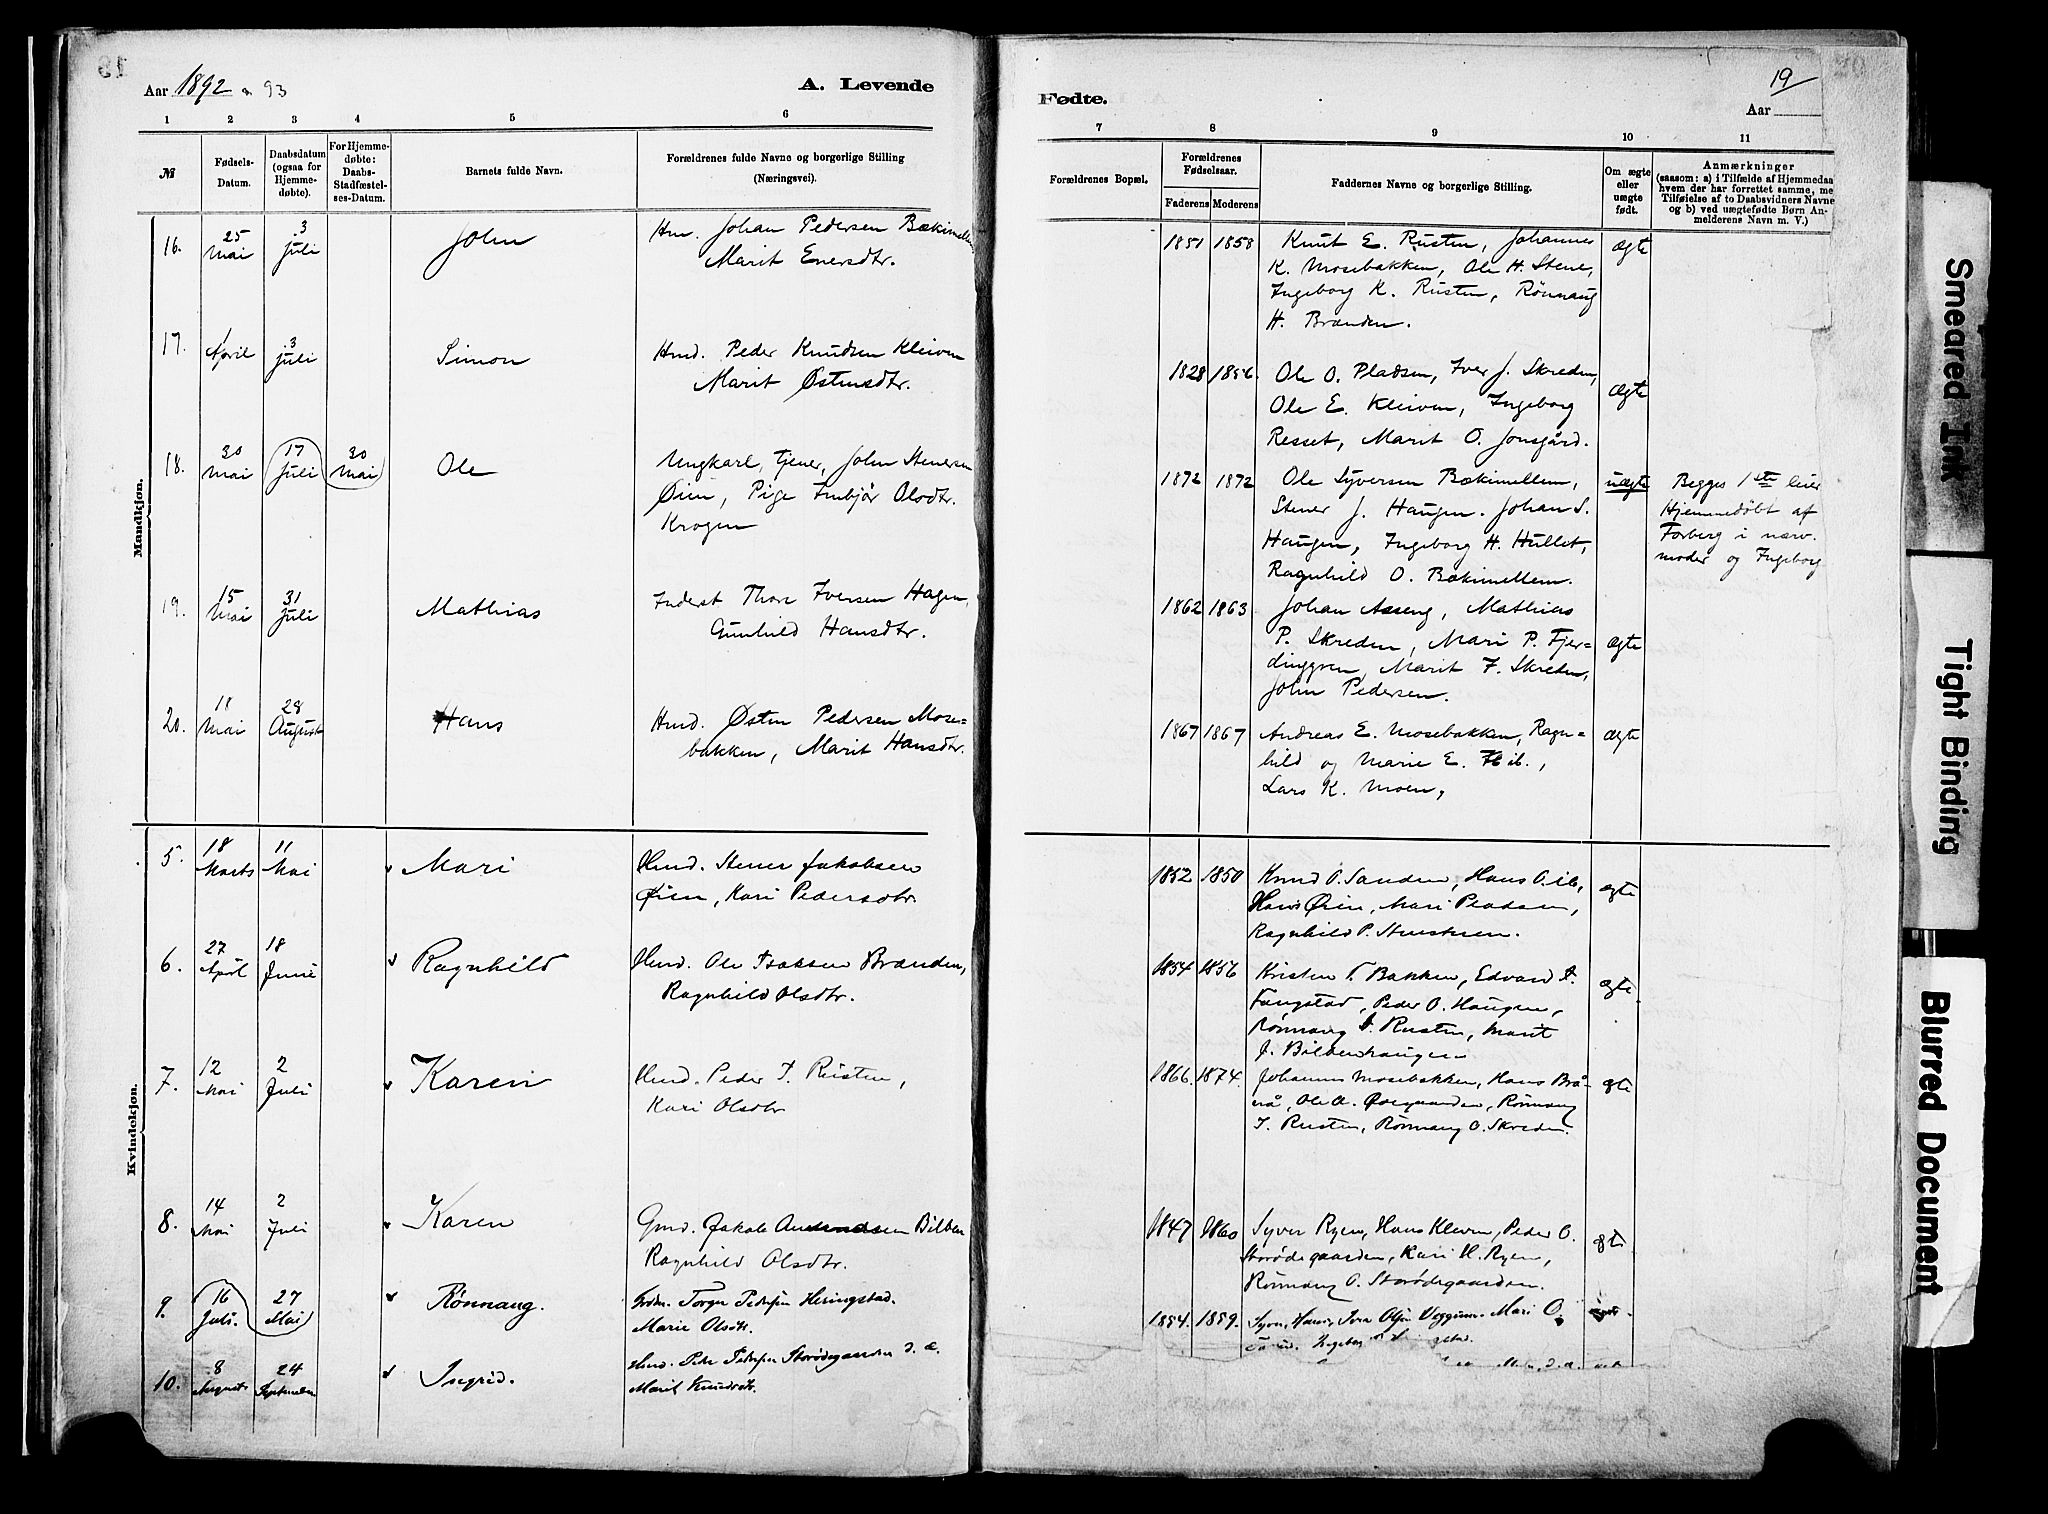 Aar 1892 93
A. Levende
1 2 3 4 5 6
№ Fødsels-Datum. Daabsdatum (ogsaa for Hjemmedøbte). For Hjemmedøbte: Daabs-Stadfæstelses-Datum. Barnets fulde Navn. Forældrenes fulde Navne og borgerlige Stilling (Næringsvei).
Mandkjøn.
16. 25 Mai 3 Juli John Hm. Johan Pedersen Bækimellem
Marit Enersdtr.
17. April 3 Juli Simon Hmd. Peder Knudsen Kleiven
Marit Østensdtr.
18. 30 Mai 17 Juli 30 Mai Ole Ungkarl, tjener, John Stenersen
Øien, Pige Imbjør Olsdtr.
Krogen
19. 15 Mai 31 Juli Mathias Inderst Thore Iversen Hagen,
Gunhild Hansdtr.
20. 18 Mai 28 August Hans Hmd. Østen Pedersen Mose-
bakken, Marit Hansdtr.
Kvindekjøn.
5. 18 Marts 11 Mai Mari Hmd. Stener Jakobsen
Øien, Kari Pedersdtr
6. 27 April 18 Juni Ragnhild Hmd. Ole Isaksen Brænden,
Ragnhild Olsdtr.
7. 12 Mai 2 Juli Karen Hmd. Peder I. Rusten,
Kari Olsdtr
8. 14 Mai 2 Juli Karen Gmd. Jakob Bilben
Ragnhild Olsdtr.
9. 16 Juli. 27 Mai Rønnaug. Torger Pedersen Heringstad.
Marie Olsdtr.
10. 8 Augusts 24 September Ingrid. Hmd. Peder Pedersen Storødegaarden d. æ.
Marit Knudsdtr.
Fødte.
19
Aar
7 8 9 10 11
Forældrenes Bopæl. Forældrenes Fødselsaar. Faderens Moderens Faddernes Navne og borgerlige Stilling. Om ægte eller uægte født. Anmærkninger
(saasom: a) i Tilfælde af Hjemmedaa
hvem der har forrettet samme, me
Tilføielse af to Daabsvidners Navne
og b) ved uægtefødte Børn An-
melderens Navn m. V.)
1851 1858 Knut E. Rusten, Johannes ægte
K. Mosebakken, Ole H. Stene,
Ingeborg K. Rusten, Rønnaug
H. Brænden.
1828 1856. Ole O. Pladsen, Iver J. Skreden, ægte
Ole E. Kleiven, Ingeborg
Resset, Marit O. Jonsgård.
1872 1872 Ole Syversen Bækimellem, uægte Begges 1ste leier
Stener J. Haugen. Johan S. Hjemmedøbt af
Haugen, Ingeborg H. Hullet, Forberg i nærv.
Ragnhild O. Bækimellem. moder og Ingeborg
1862 1863 Johan Asseng, Mathias
P. Skreden, Mari P. Fjer- ægte
dinggren, Marit F. Skreden,
John Pedersen.
1867 1867 Andreas E. Mosebakken, Ragn- ægte
hild og Marie E. ib.,
Lars K. Moen,
1852 1850 Knud O. Sanden, Hans O. ib, ægte
Hans Øien, Mari Pladsen,
Ragnhild P.
1854 1856 Kristen T. Bakken, Edvard
Fangstad, Peder O. Haugen, ægte
Rønnaug I. Rusten, Marit
J. Bilbenhaugen
1866. 1874. Johannes Mosebakken, Hans Brå- ægte
nå, Ole A. Øvegaarden, Rønnaug
I. Rusten, Rønnaug O. Skreden.
1847 1860 Syver Ryen, Hans Kleven, Peder O. ægte
Storødegaarden, Kari H. Ryen,
Rønnaug O. Storødegaarden.
1854. 1859. Iver Olsen Veggum. Mari O.
Ingeborg
Smeared Ink
Tight Binding
Blurred Document